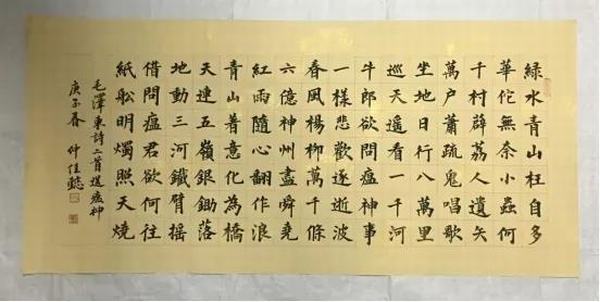 綠水青山枉自多
華佗無奈小蟲何
千村薜荔人遺矢
萬户蕭疏鬼唱歌
坐地日行八萬里
巡天遥看一千河
牛郎欲問瘟神事
一樣悲歡逐逝波
春風楊柳萬千條
六億神州盡舜堯
紅雨隨心翻作浪
青山着意化為橋
天連五嶺銀鋤落
地動三河鐵臂摇
借問瘟君欲何往
紙舩明燭照天燒
毛澤東詩二首送瘟神
庚子春 仲佳懿